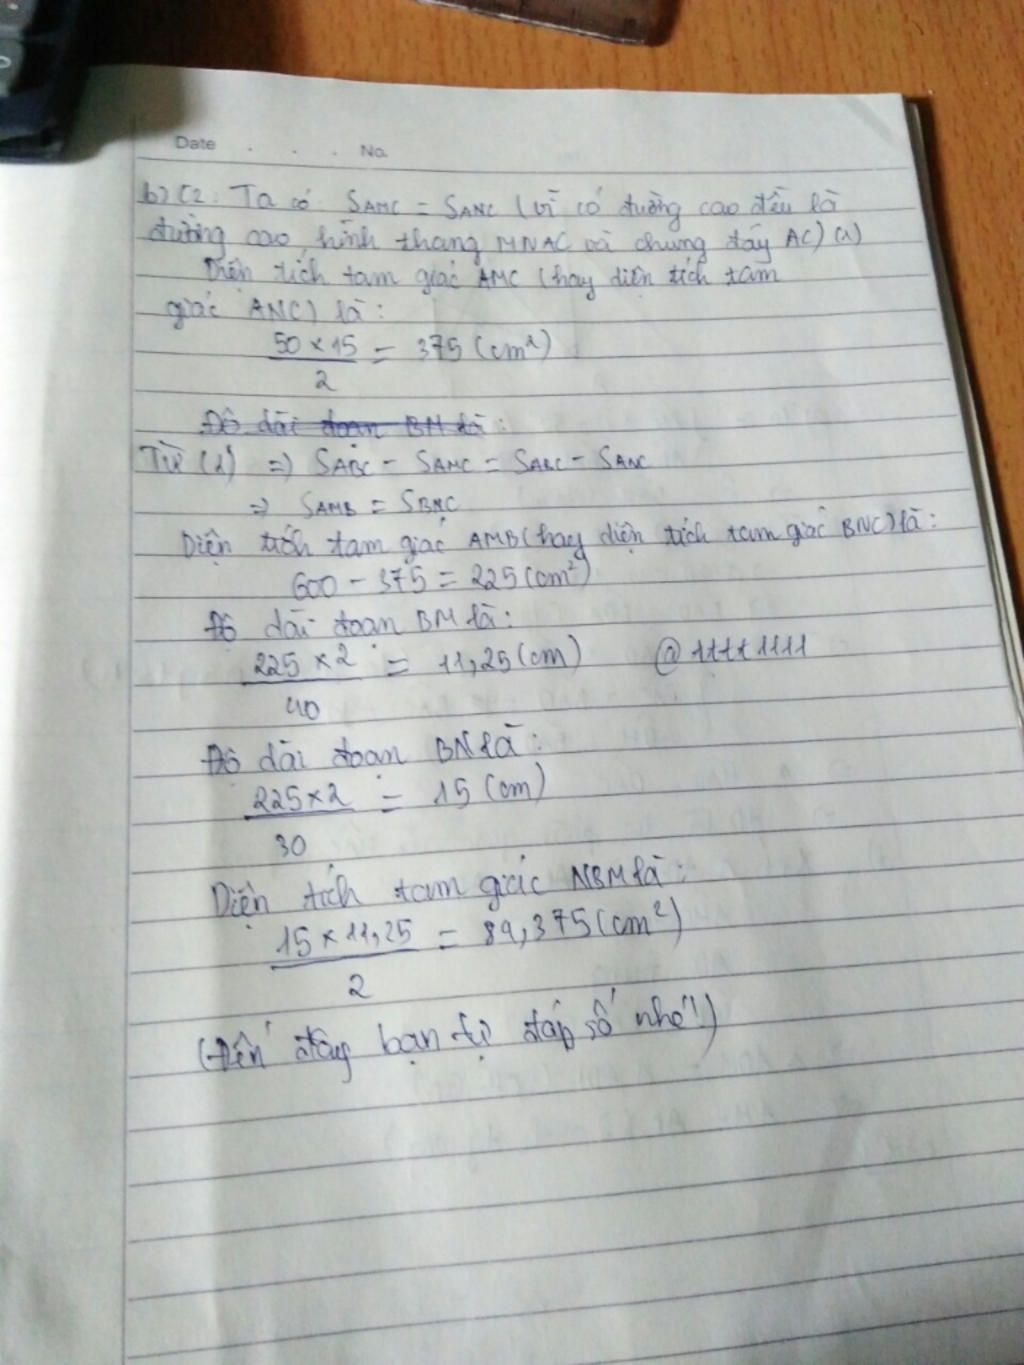 Date . . . No.
b) C2: Ta có SAMC = SANC (vì có đường cao đều là
đường cao hình thang MNAC và chung đáy AC) (1)
Diện tích tam giác AMC (hay diện tích tam
giác ANC) là:
50 × 15 / 2 = 375 (cm²)
Độ dài đoạn BM là:
Từ (1) => SABC - SAMC = SABC - SANC
=> SAMB = SBNC
Diện tích tam giác AMB (hay diện tích tam giác BNC) là:
600 - 375 = 225 (cm²)
Độ dài đoạn BM là:
225 × 2 / 40 = 11,25 (cm) @11111111
Độ dài đoạn BN là:
225 × 2 / 30 = 15 (cm)
Diện tích tam giác NBM là:
15 × 11,25 / 2 = 84,375 (cm²)
(Đến đây bạn tự đáp số nhé!)